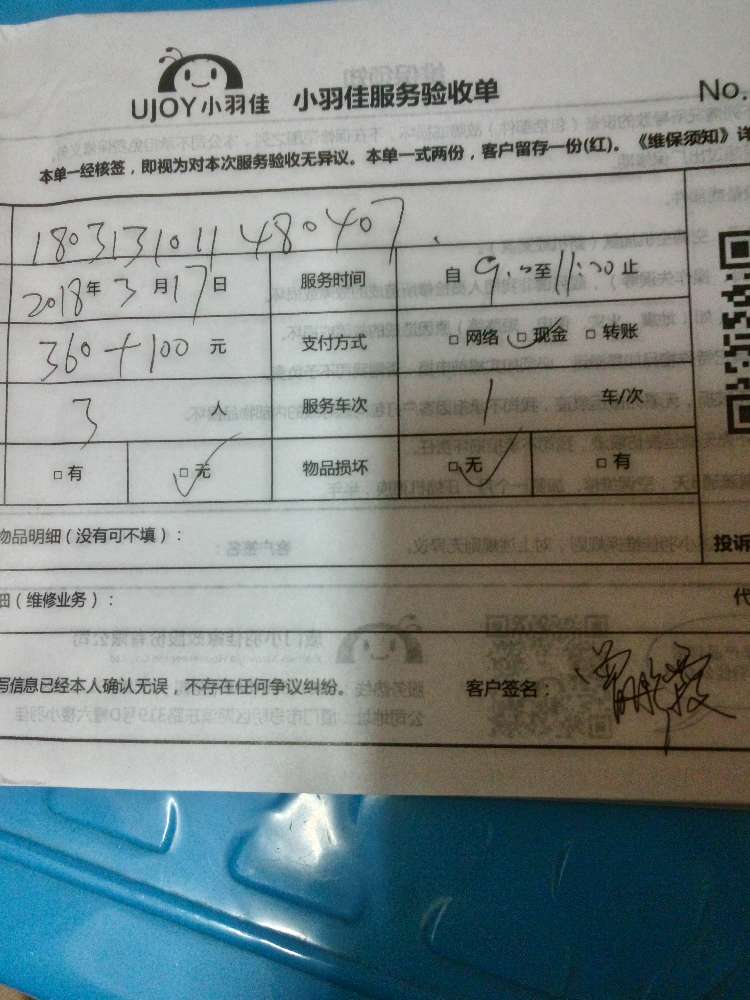 UJOY小羽佳 小羽佳服务验收单 No.
本单一经核签，即视为对本次服务验收无异议。本单一式两份，客户留存一份(红)。《维保须知》详
1803131011480407
2018年3月17日 服务时间 自9:00至11:00止
360+100元 支付方式 □网络 □现金 □转账
3人 服务车次 1 车/次
□有 □无 物品损坏 □无 □有
物品明细（没有可不填）： 投诉
细（维修业务）： 代
写信息已经本人确认无误，不存在任何争议纠纷。 客户签名：